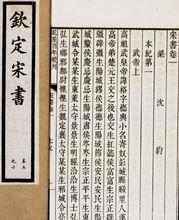 宋書卷一
梁沈約
本紀第一
武帝上
高祖武皇帝諱裕字德輿小名寄奴彭城縣綏里人漢
高帝弟楚元王交之後也交生紅懿侯富富生宗正辟
彊辟彊生陽城繆侯德德生陽城節侯安民安民生陽
城釐侯慶忌慶忌生陽城肅侯岑岑生宗正平平生東
武城令某某生東萊太守景景生明經洽洽生博士弘
弘生琅邪都尉悝悝生魏定襄太守某某生邪城令亮
欽定宋書